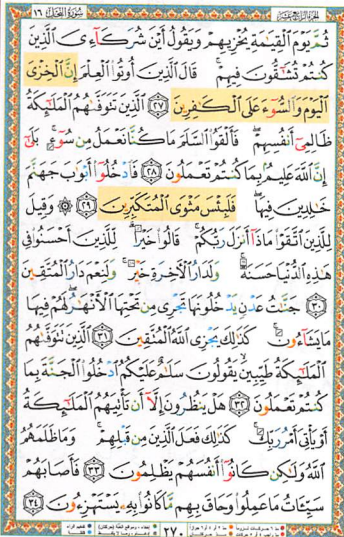 سورة النحل ١٦
الجزء الرابع عشر
ثُمَّ يَوْمَ الْقِيَٰمَةِ يُخْزِيهِمْ وَيَقُولُ أَيْنَ شُرَكَآءِىَ الَّذِينَ
كُنتُمْ تُشَٰٓقُّونَ فِيهِمْ ۚ قَالَ الَّذِينَ أُوتُوا۟ الْعِلْمَ إِنَّ الْخِزْىَ
الْيَوْمَ وَالسُّوٓءَ عَلَى الْكَٰفِرِينَ ﴿٢٧﴾ الَّذِينَ تَتَوَفَّىٰهُمُ الْمَلَٰٓئِكَةُ
ظَالِمِىٓ أَنفُسِهِمْ ۖ فَأَلْقَوُا۟ السَّلَمَ مَا كُنَّا نَعْمَلُ مِن سُوٓءٍۭ ۚ بَلَىٰٓ
إِنَّ اللَّهَ عَلِيمٌۢ بِمَا كُنتُمْ تَعْمَلُونَ ﴿٢٨﴾ فَادْخُلُوٓا۟ أَبْوَٰبَ جَهَنَّمَ
خَٰلِدِينَ فِيهَا ۖ فَلَبِئْسَ مَثْوَى الْمُتَكَبِّرِينَ ﴿٢٩﴾ ۞ وَقِيلَ
لِلَّذِينَ اتَّقَوْا۟ مَاذَآ أَنزَلَ رَبُّكُمْ ۚ قَالُوا۟ خَيْرًا ۗ لِّلَّذِينَ أَحْسَنُوا۟ فِى
هَٰذِهِ الدُّنْيَا حَسَنَةٌ ۚ وَلَدَارُ الْءَاخِرَةِ خَيْرٌ ۚ وَلَنِعْمَ دَارُ الْمُتَّقِينَ
﴿٣٠﴾ جَنَّٰتُ عَدْنٍ يَدْخُلُونَهَا تَجْرِى مِن تَحْتِهَا الْأَنْهَٰرُ ۖ لَهُمْ فِيهَا
مَا يَشَآءُونَ ۚ كَذَٰلِكَ يَجْزِى اللَّهُ الْمُتَّقِينَ ﴿٣١﴾ الَّذِينَ تَتَوَفَّىٰهُمُ
الْمَلَٰٓئِكَةُ طَيِّبِينَ ۙ يَقُولُونَ سَلَٰمٌ عَلَيْكُمُ ادْخُلُوا۟ الْجَنَّةَ بِمَا
كُنتُمْ تَعْمَلُونَ ﴿٣٢﴾ هَلْ يَنظُرُونَ إِلَّآ أَن تَأْتِيَهُمُ الْمَلَٰٓئِكَةُ
أَوْ يَأْتِىَ أَمْرُ رَبِّكَ ۚ كَذَٰلِكَ فَعَلَ الَّذِينَ مِن قَبْلِهِمْ ۚ وَمَا ظَلَمَهُمُ
اللَّهُ وَلَٰكِن كَانُوٓا۟ أَنفُسَهُمْ يَظْلِمُونَ ﴿٣٣﴾ فَأَصَابَهُمْ
سَيِّـَٔاتُ مَا عَمِلُوا۟ وَحَاقَ بِهِم مَّا كَانُوا۟ بِهِۦ يَسْتَهْزِءُونَ ﴿٣٤﴾
٢٧٠